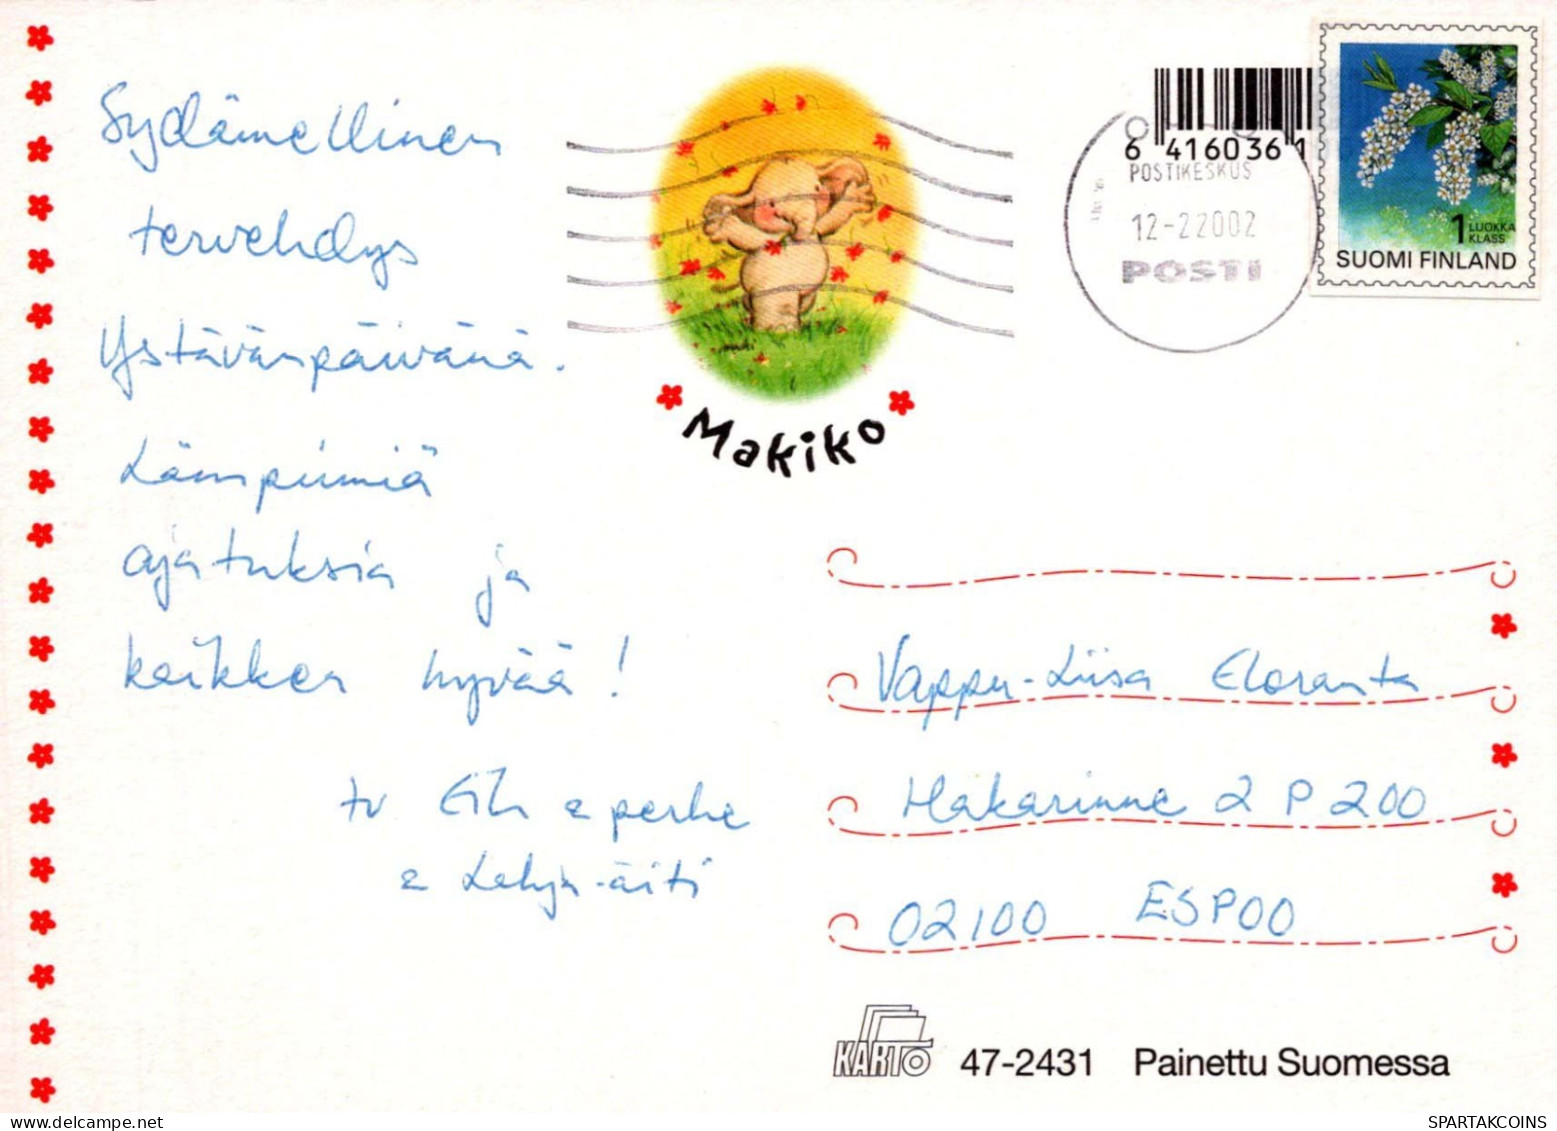 Sydämellinen
tervehdys
Ystävänpäivänä.
Lämpimiä
ajatuksia ja
kaikkea hyvää!
tv Eila & perhe
& Lahja-äiti
Makiko
6 416036 1
POSTIKESKUS
12-22002
POSTI
1 LUOKKA
KLASS
SUOMI FINLAND
Vappu-Liisa Eloranta
Hakarinne 2 P 200
02100 ESPOO
KARTO 47-2431 Painettu Suomessa
SPARTAKCOINS